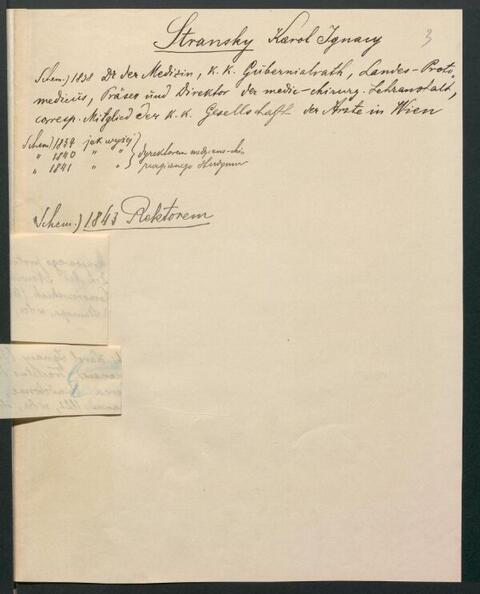 Stransky Karol Ignacy
3
Schem.) 1838 Dr der Medizin, k. k. Gubernialrath, Landes-Proto-
medicus, Präses und Direktor der medic-chirurg. Lehranstalt,
corresp. Mitglied der k. k. Gesellschaft der Ärzte in Wien
Schem.) 1839 jak wyżej
" 1840 " " dyrektorem medyczno-chi-
" 1841 " " rurgicznego Studyum
Schem.) 1843 Rektorem